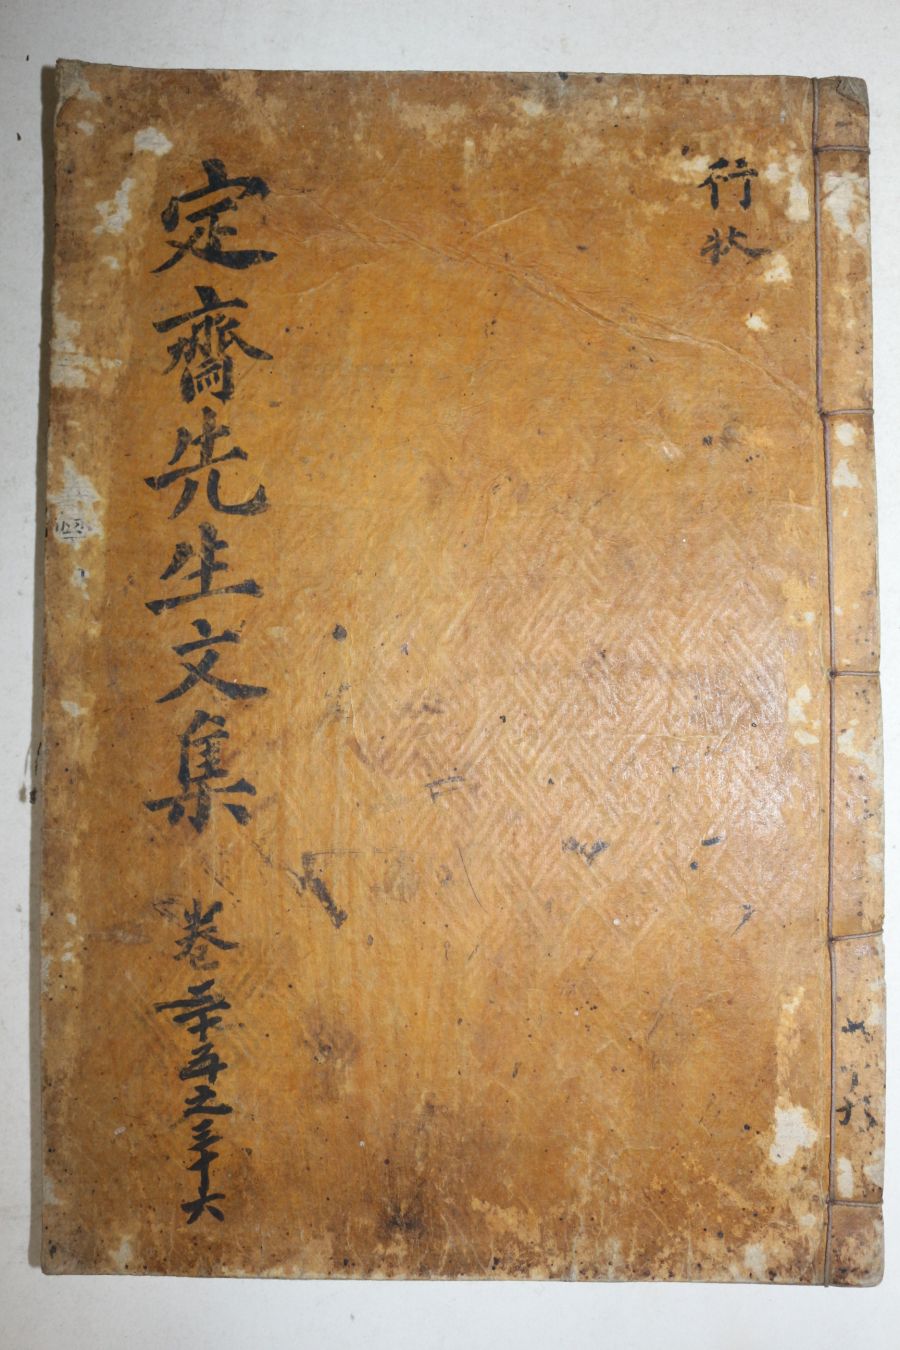 行状
定齋先生文集 卷三十五之三十六